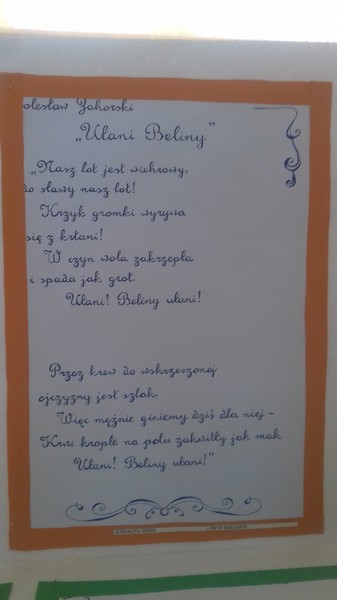 olesław Zahorski
„Ułani Beliny"
„Nasz lot jest wichrowy,
do sławy nasz lot!
Krzyk gromki wyrywa
się z krtani!
W czyn wola zakrzepła
i spada jak grot.
Ułani! Beliny ułani!
Przez krew do wskrzeszonej
ojczyzny jest szlak,
Więc mężnie giniemy dziś dla niej -
Krwi krople na polu zakwitły jak mak
Ułani! Beliny ułani!"